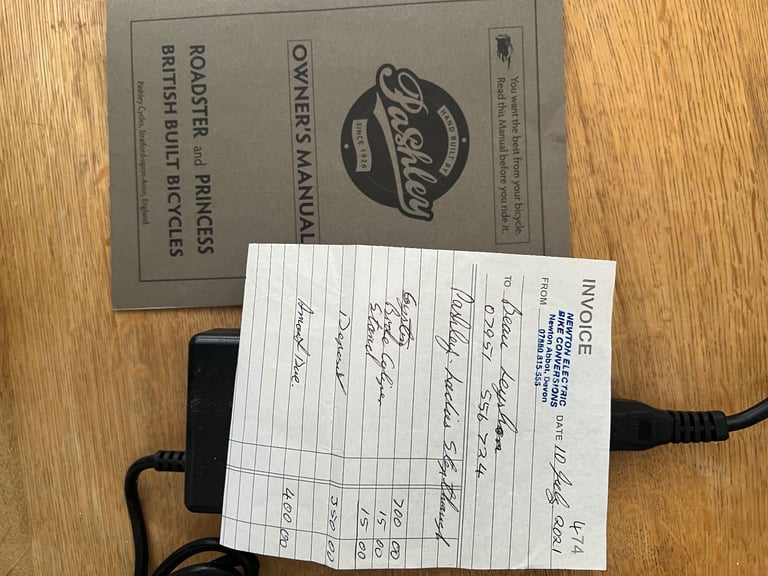 You want the best from your bicycle.
Read this Manual before you ride it.
HAND BUILT BY
Pashley
SINCE 1926
OWNER'S MANUAL
ROADSTER and PRINCESS
BRITISH BUILT BICYCLES
Pashley Cycles, Stratford-upon-Avon, England.
INVOICE 474
NEWTON ELECTRIC
BIKE CONVERSIONS
Newton Abbot, Devon
07880 815 555
FROM DATE 10 July 2021
TO Beau
07951 556 734
Pashley Ladies Step Through
700 00
Brake 15 00
Stand 15 00
Deposit 350 00
Amount Due. 400 00